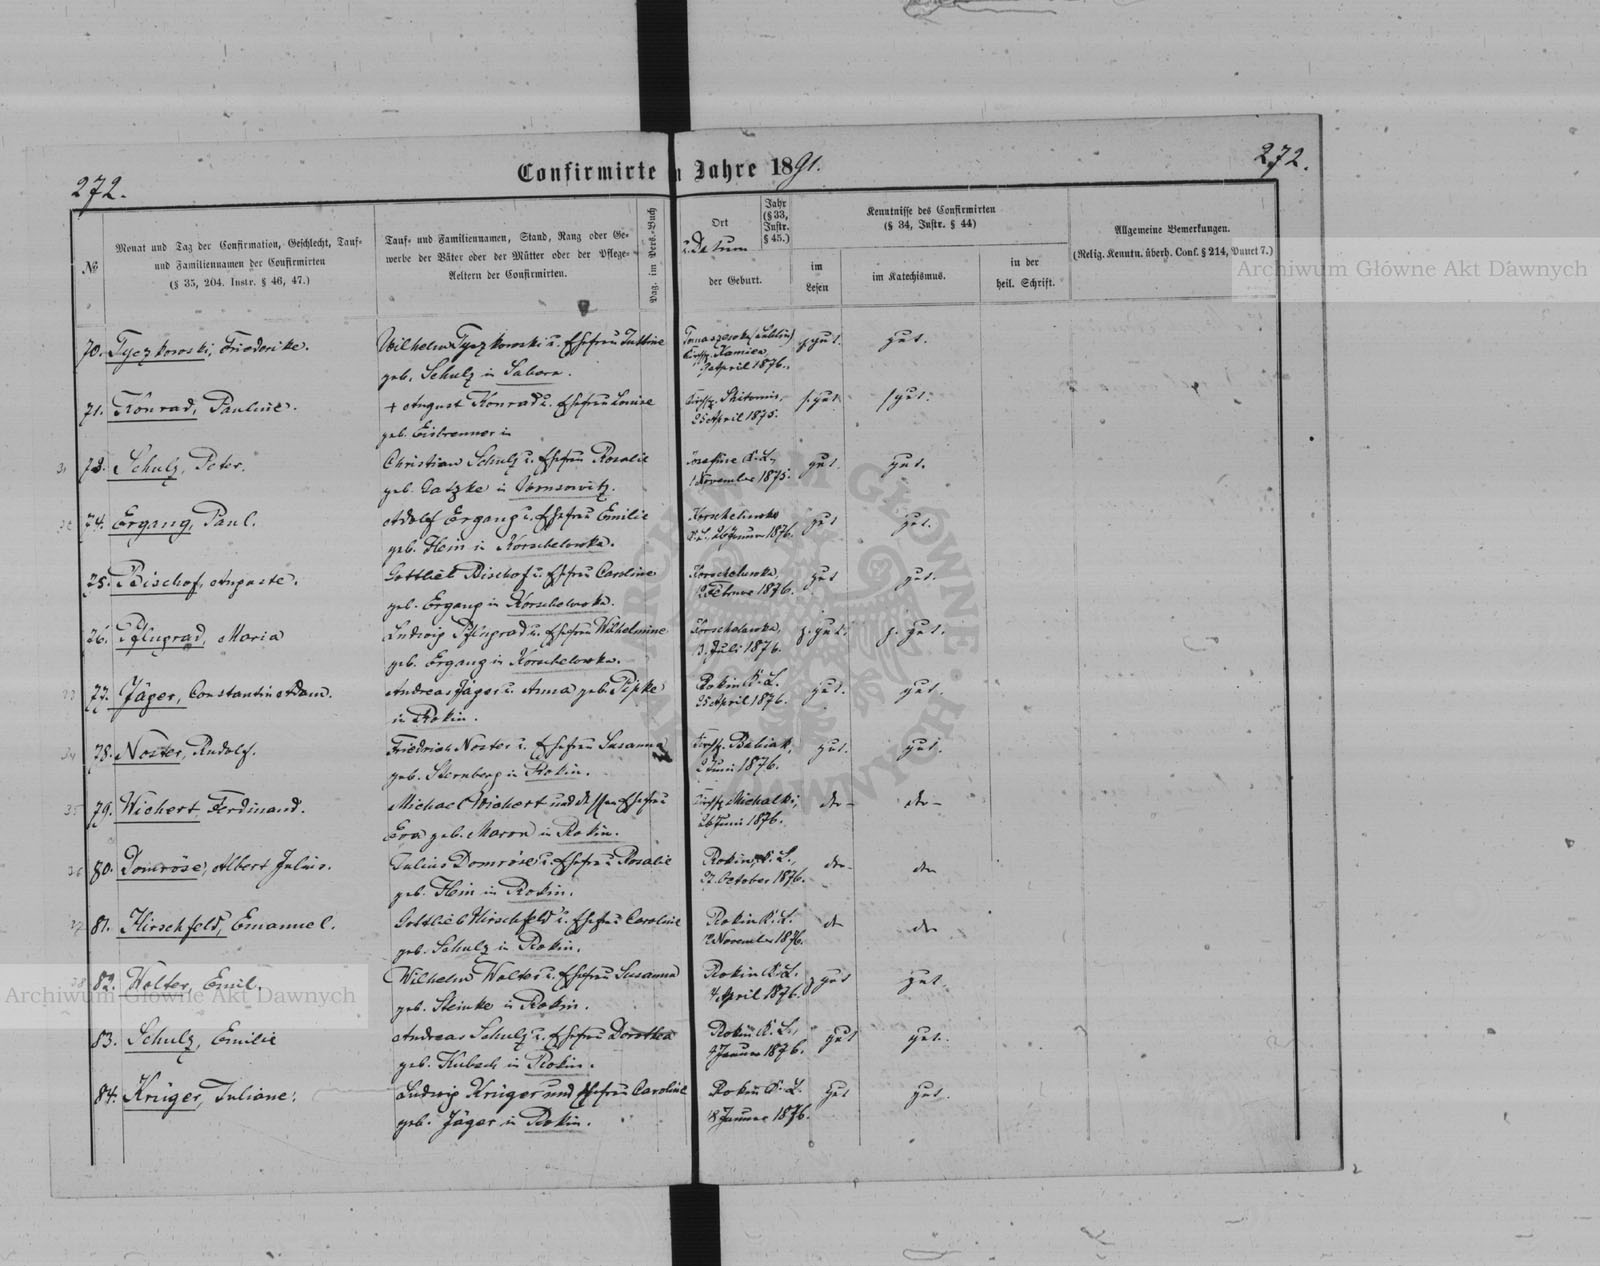 272.
Confirmirte im Jahre 1891.
272.
№
Monat und Tag der Confirmation, Geschlecht, Tauf-
und Familiennamen der Confirmirten
(§ 35, 204. Instr. § 46, 47.)
Tauf- und Familiennamen, Stand, Rang oder Ge-
werbe der Väter oder der Mütter oder der Pflege-
Aeltern der Confirmirten.
Pag. im Pers.-Buch
Ort
u. Datum
der Geburt.
Jahr
(§ 33,
Instr.
§ 45.)
Kenntnisse des Confirmirten
(§ 34, Instr. § 44)
im
Lesen
im Katechismus.
in der
heil. Schrift.
Allgemeine Bemerkungen.
(Relig. Kenntn. überh. Conf. § 214, Punct 7.)
Archiwum Główne Akt Dawnych
70. Tyczkowski, Friederike.
Wilhelm Tyczkowski u. Ehefrau Justine
geb. Schulz in Sabora.
Tomaszewka (Lublin)
Kirchsp. Kamien,
9 April 1876.
z. gut.
gut.
71. Konrad, Pauline.
† August Konrad u. Ehefrau Louise
geb. Eisbrenner in
Kirchsp. Shitomir,
25 April 1875.
s. gut
s. gut.
31
73. Schulz, Peter.
Christian Schulz u. Ehefrau Rosalie
geb. Gatzke in
Josefine K. L.,
1 November 1875.
gut.
gut.
32
74. Ergang, Paul.
Adolf Ergang u. Ehefrau Emilie
geb. Hein in Korschelowka.
Korschelowka
K. L. 26 Januar 1876.
gut
gut.
75. Bischof, Auguste.
Gottlieb Bischof u. Ehefrau Caroline
geb. Ergang in Korschelowka.
Korschelowka,
12 Februar 1876.
gut
gut.
76. Pflugrad, Maria
Ludwig Pflugrad u. Ehefrau Wilhelmine
geb. Ergang in Korschelowka.
Korschelowka,
3. Juli 1876.
z. gut.
z. gut.
33
77. Jäger, Constantin Adam.
Andreas Jäger u. Anna geb. Pipke
in Rokin.
Rokin K. L.
25 April 1876.
gut.
gut.
34
78. Noster, Rudolf.
Friedrich Noster u. Ehefrau Susanna
geb. Sternberg in Rokin.
Kirchsp. Babiak,
2 Juni 1876.
gut.
gut.
35
79. Wichert, Ferdinand.
Michael Wichert und dessen Ehefrau
Eva geb. Maron in Rokin.
Kirchsp. Michalki,
26 Juni 1876.
dto
dto
36
80. Domröse, Albert Julius.
Julius Domröse u. Ehefrau Rosalie
geb. Hein in Rokin.
Rokin, K. L.,
27. October 1876.
dto
dto
37
81. Hirschfeld, Emanuel.
Gottlieb Hirschfeld u. Ehefrau Caroline
geb. Schulz in Rokin.
Rokin K. L.
12 November 1876.
dto
dto
38
82. Wolter, Emil.
Wilhelm Wolter u. Ehefrau Susanna
geb. Steinke in Rokin.
Rokin K. L.
4 April 1876.
z. gut
gut.
Archiwum Główne Akt Dawnych
83. Schulz, Emilie
Andreas Schulz u. Ehefrau Dorothea
geb. Kubsch in Rokin.
Rokin K. L.,
9 Januar 1876.
gut
gut.
84. Krüger, Juliane.
Ludwig Krüger und Ehefrau Caroline
geb. Jäger in Rokin.
Rokin K. L.
18 Januar 1876.
gut
gut.
ARCHIWUM GŁÓWNE AKT DAWNYCH